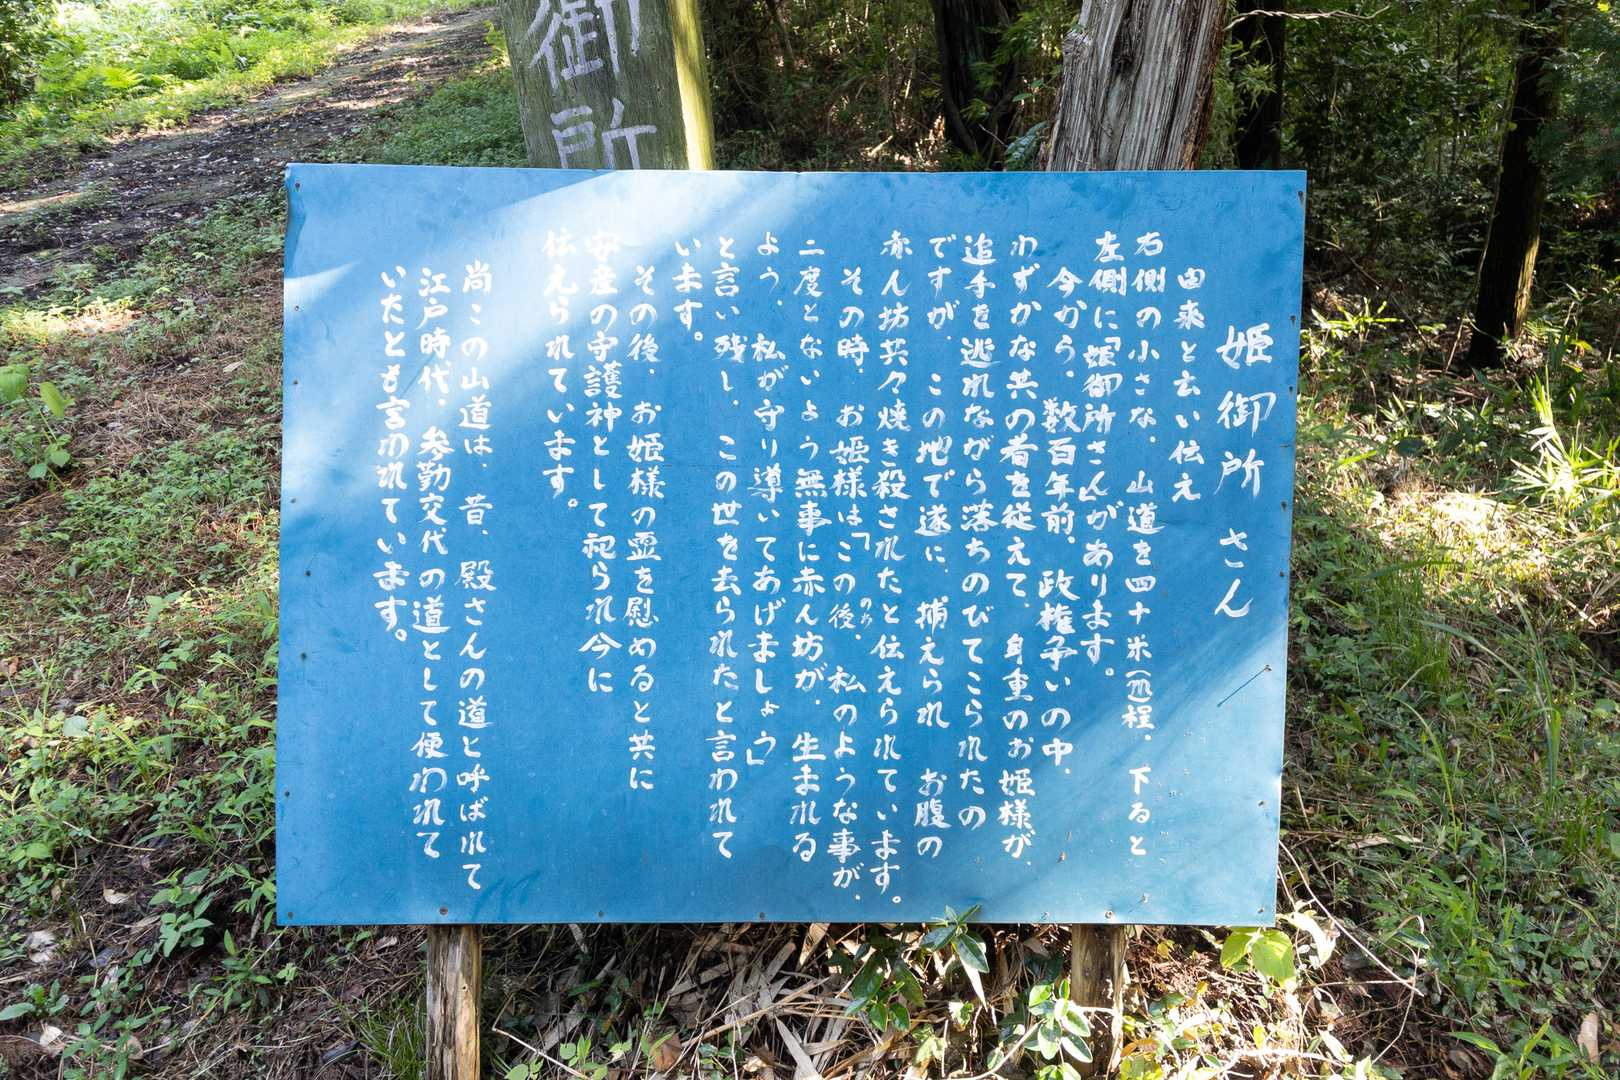 御所
姫御所 さん
由来と云い伝え
右側の小さな、山道を四十米(㍍)程、下ると
左側に「姫御所さん」があります。
今から、数百年前、政権争いの中、
わずかな共の者を従えて、身重のお姫様が、
追手を逃れながら落ちのびてこられたの
ですが、この地で遂に、捕えられ お腹の
赤ん坊共々焼き殺されたと伝えられています。
その時、お姫様は「この後、私のような事が、
のち
二度とないよう無事に赤ん坊が、生まれる
よう、私が守り導いてあげましょう」
と言い残し、この世を去られたと言われて
います。
その後、お姫様の霊を慰めると共に
安産の守護神として祀られ今に
伝えられています。
尚この山道は、昔、殿さんの道と呼ばれて
江戸時代、参勤交代の道として使われて
いたとも言われています。